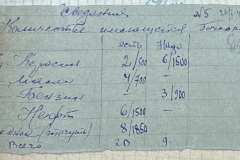 Сведения
Количество имеющейся бочкар
№5
есть Надо
Керосин 2/500 6/1500
Масла 4/700 —
Бензин — 3/900
Нефть 6/1500
8/1850
Всего 20 9